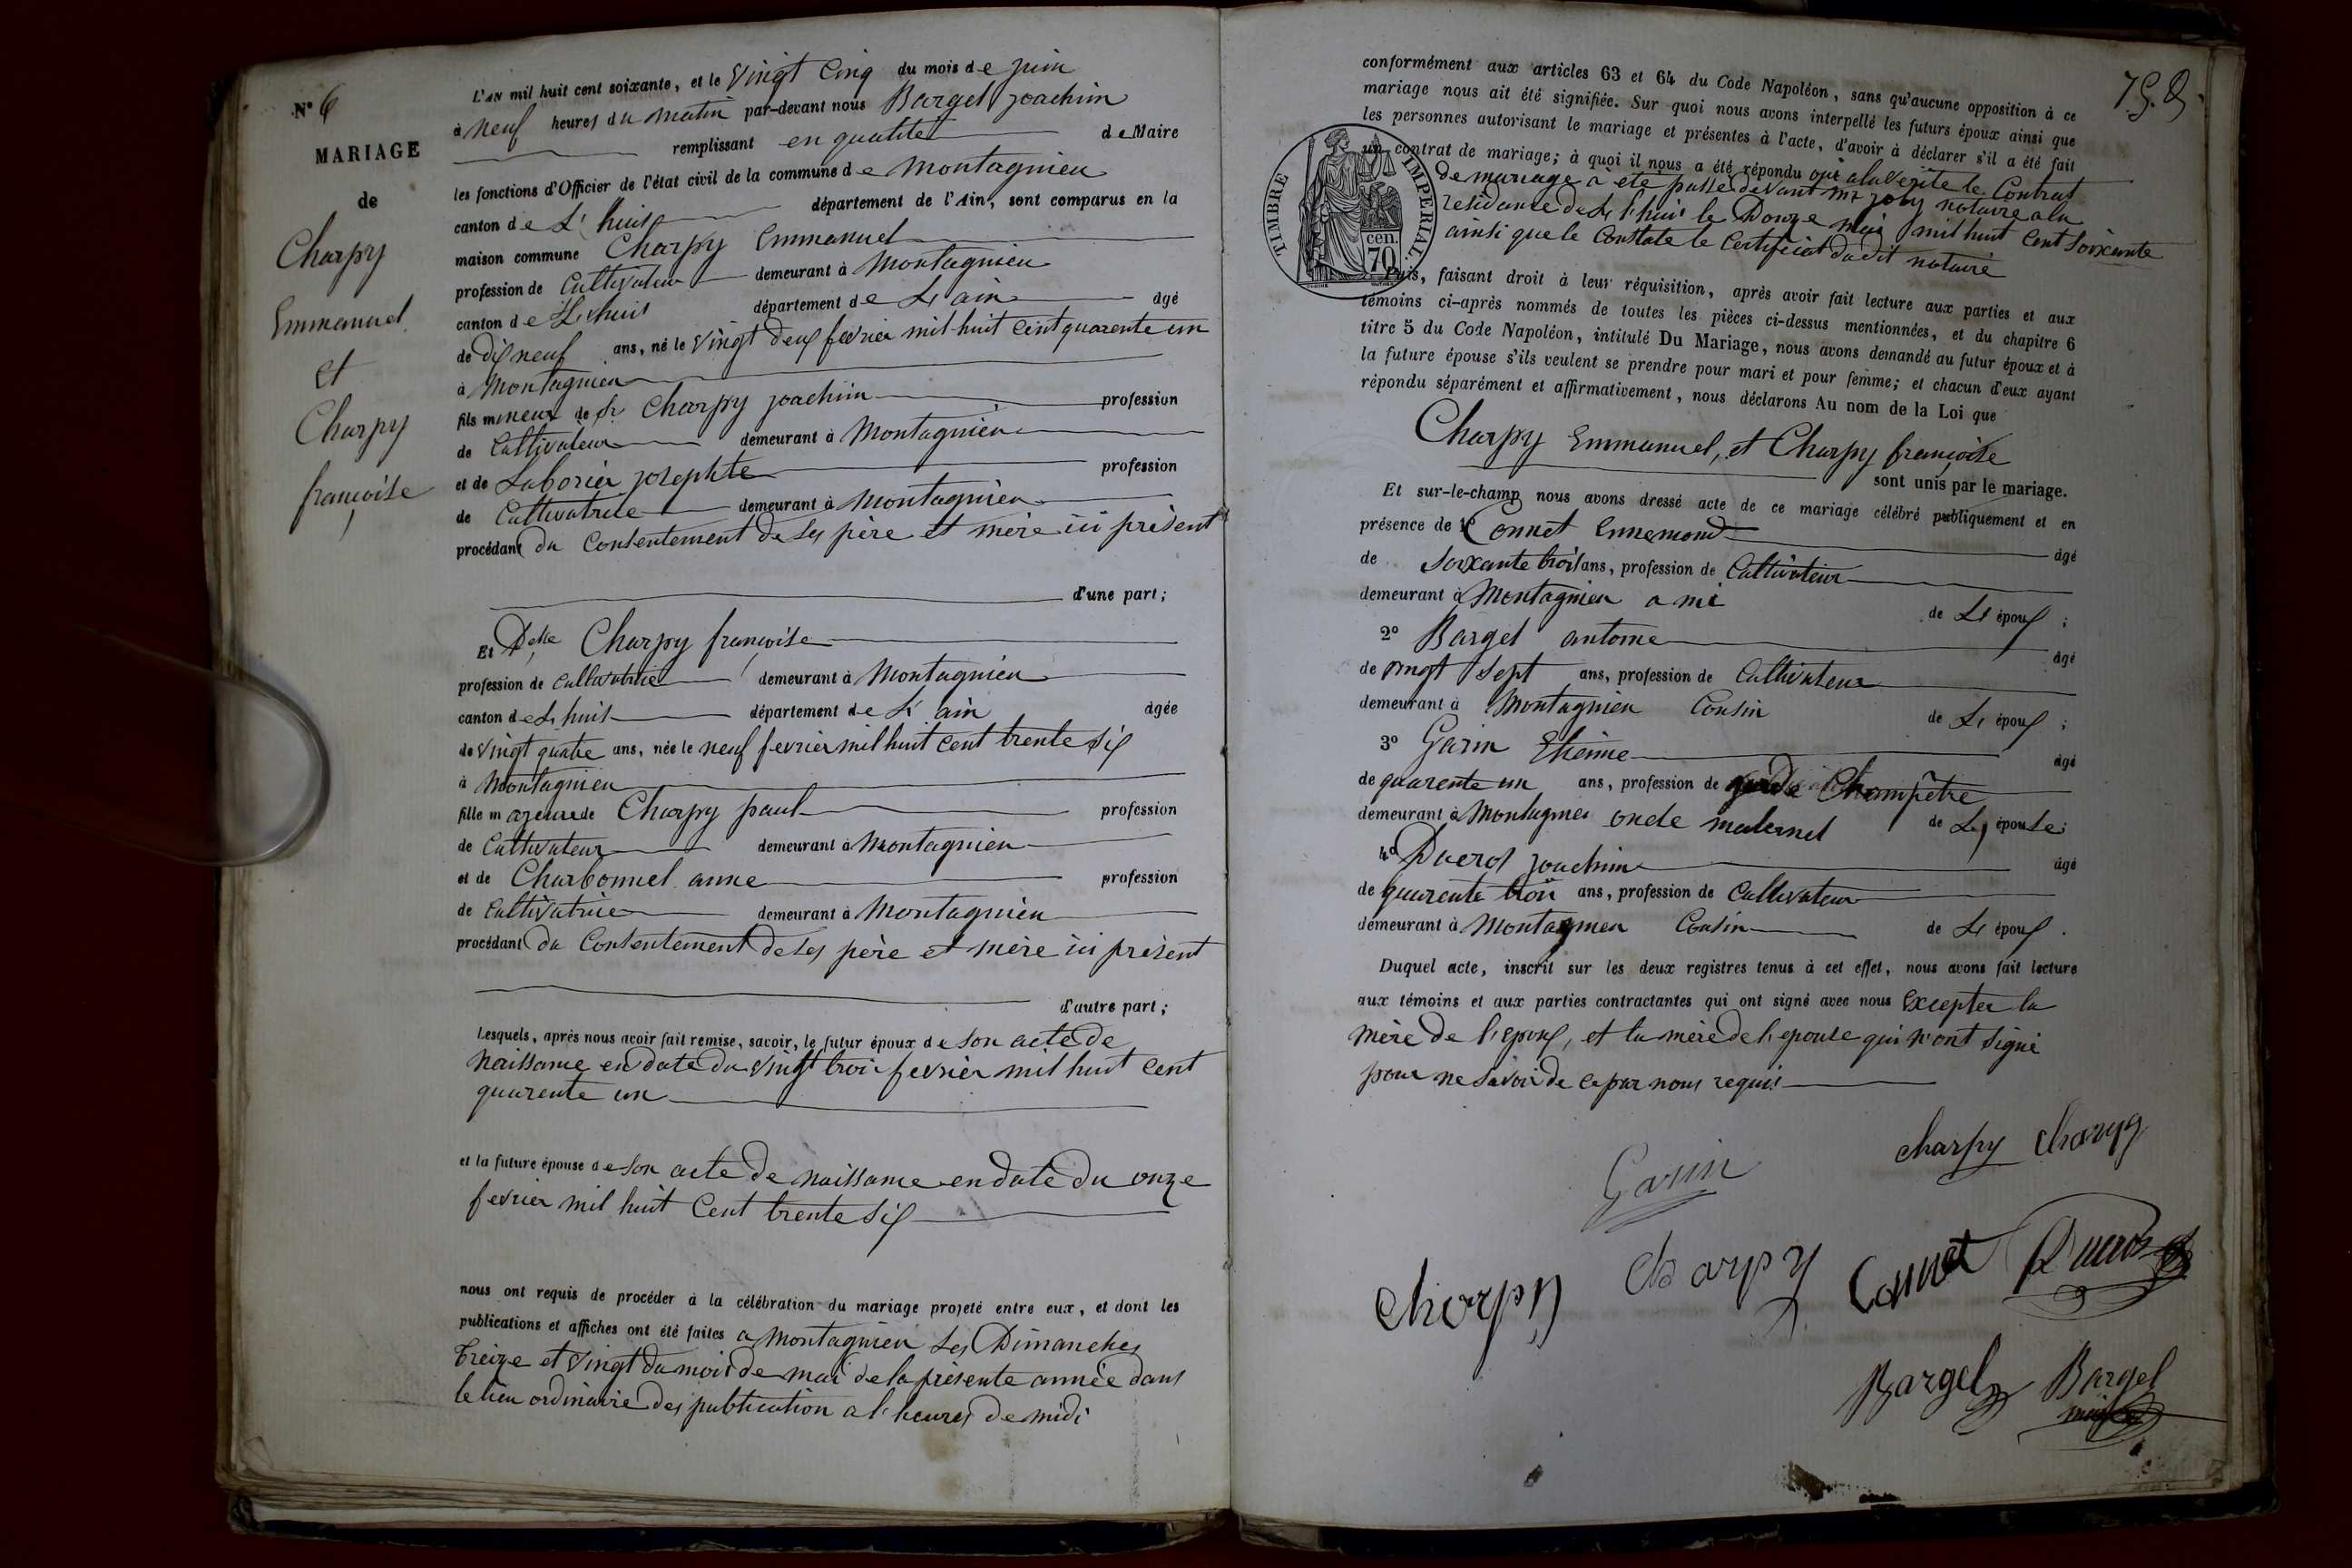 N° 6
MARIAGE
de
Charpy
Emmanuel
et
Charpy
françoise
L'AN mil huit cent soixante, et le vingt Cinq du mois de juin
à neuf heures du matin par-devant nous Bargel joachim
remplissant en qualité de Maire
les fonctions d'Officier de l'état civil de la commune de Montagnieu
canton de L'huis département de l'Ain, sont comparus en la
maison commune Charpy Emmanuel
profession de Cultivateur demeurant à Montagnieu
canton de L'huis département de L'ain âgé
de dix neuf ans, né le vingt deux fevrier mil huit cent quarente un
à Montagnieu
fils mineur de Sr Charpy joachim profession
de Cultivateur demeurant à Montagnieu
et de Laborier josephte profession
de Cultivatrice demeurant à Montagnieu
procédant du Consentement de ses père et mère ici présent
d'une part;
Et Delle Charpy françoise
profession de cultivatrice demeurant à Montagnieu
canton de Lhuis département de L'ain âgée
de vingt quatre ans, née le neuf fevrier mil huit cent trente six
à Montagnieu
fille majeure de Charpy paul profession
de Cultivateur demeurant à Montagnieu
et de Charbonnel anne profession
de Cultivatrice demeurant à Montagnieu
procédant du Consentement de ses père et mère ici présent
d'autre part;
Lesquels, après nous avoir fait remise, savoir, le futur époux de son acte de
naissance en date du vingt trois fevrier mil huit cent
quarente un
et la future épouse de son acte de naissance en date du onze
fevrier mil huit Cent trente six
nous ont requis de procéder à la célébration du mariage projeté entre eux, et dont les
publications et affiches ont été faites a Montagnieu Les Dimanches
treize et vingt du mois de mai de la présente année dans
le lieu ordinaire des publication a l'heures de midi
conformément aux articles 63 et 64 du Code Napoléon, sans qu'aucune opposition à ce
mariage nous ait été signifiée. Sur quoi nous avons interpellé les futurs époux ainsi que
les personnes autorisant le mariage et présentes à l'acte, d'avoir à déclarer s'il a été fait
un contrat de mariage; à quoi il nous a été répondu que a la vérité le Contrat
de mariage a été passé devant mr joly notaire a la
residance de L'huis le Douze mai mil huit Cent Soixante
ainsi que le Constate le Certificat dudit notaire
TIMBRE IMPERIAL
cen.
70
Puis, faisant droit à leur réquisition, après avoir fait lecture aux parties et aux
témoins ci-après nommés de toutes les pièces ci-dessus mentionnées, et du chapitre 6
titre 5 du Code Napoléon, intitulé Du Mariage, nous avons demandé au futur époux et à
la future épouse s'ils veulent se prendre pour mari et pour femme; et chacun d'eux ayant
répondu séparément et affirmativement, nous déclarons Au nom de la Loi que
Charpy Emmanuel, et Charpy françoise
sont unis par le mariage.
Et sur-le-champ nous avons dressé acte de ce mariage célébré publiquement et en
présence de Connet Ennemond âgé
de Soixante trois ans, profession de Cultivateur
demeurant à Montagnieu ami de L'époux;
2° Bargel antoine âgé
de vingt Sept ans, profession de Cultivateur
demeurant à Montagnieu Cousin de L'époux;
3° Garin Etienne âgé
de quarente un ans, profession de garde Champêtre
demeurant à Montagnieu oncle maternel de L'épouse;
4° Ducros joachim âgé
de quarente trois ans, profession de Cultivateur
demeurant à Montagnieu Cousin de L'époux.
Duquel acte, inscrit sur les deux registres tenus à cet effet, nous avons fait lecture
aux témoins et aux parties contractantes qui ont signé avec nous Excepter la
mère de l'epoux, et la mère de l'epouse qui n'ont signé
pour ne savoir de ce par nous requis
charpy charpy
Garin
charpy charpy Connet Ducros
Bargel Bargel